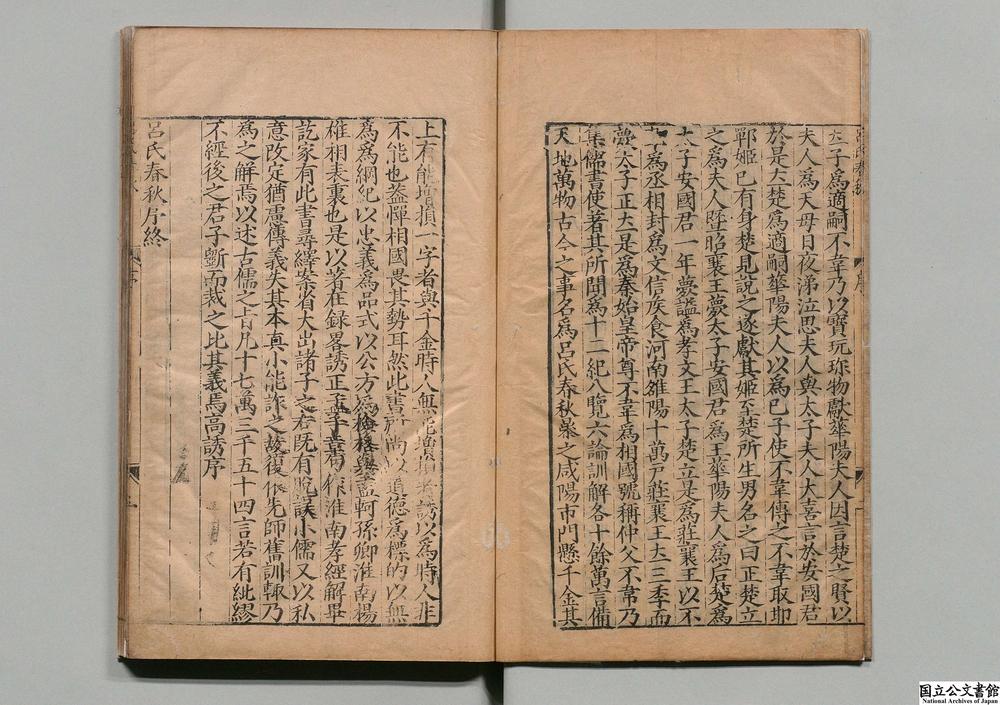 太子爲適嗣不韋乃以寶玩珍物獻華陽夫人因言楚之賢以
夫人爲天母日夜涕泣思夫人與太子夫人大喜言於安國君
於是立楚爲適嗣華陽夫人以爲己子使不韋傅之不韋取邯
鄲姬已有身楚見說之遂獻其姬至楚所生男名之曰正楚立
之爲夫人曁昭襄王薨太子安國君爲王華陽夫人爲后楚爲
太子安國君一年薨謚爲孝文王太子楚立是爲莊襄王以不
韋爲丞相封爲文信侯食河南雒陽十萬戸莊襄王立三季而
薨太子正立是爲秦始皇帝尊不韋爲相國號稱仲父不韋乃
集儒書使著其所聞爲十二紀八覽六論訓解各十餘萬言備
天地萬物古今之事名爲呂氏春秋㬥之咸陽市門懸千金其
上有能增損一字者與千金時人無能增損者誘以爲時人非
不能也葢憚相國畏其勢耳然此書所尚以道德爲標的以無
爲爲綱紀以忠義爲品式以公方爲檢格與孟軻孫卿淮南揚
雄相表裏也是以著在録畧誘正孟子章句作淮南孝經解畢
訖家有此書尋繹案省大出諸子之右既有脫誤小儒又以私
意改定猶慮傳義失其本眞少能詳之故復依先師舊訓輒乃
爲之解焉以述古儒之旨凡十七萬三千五十四言若有紕繆
不經後之君子斷而裁之比其義焉高誘序
呂氏春秋序終
国立公文書館
National Archives of Japan